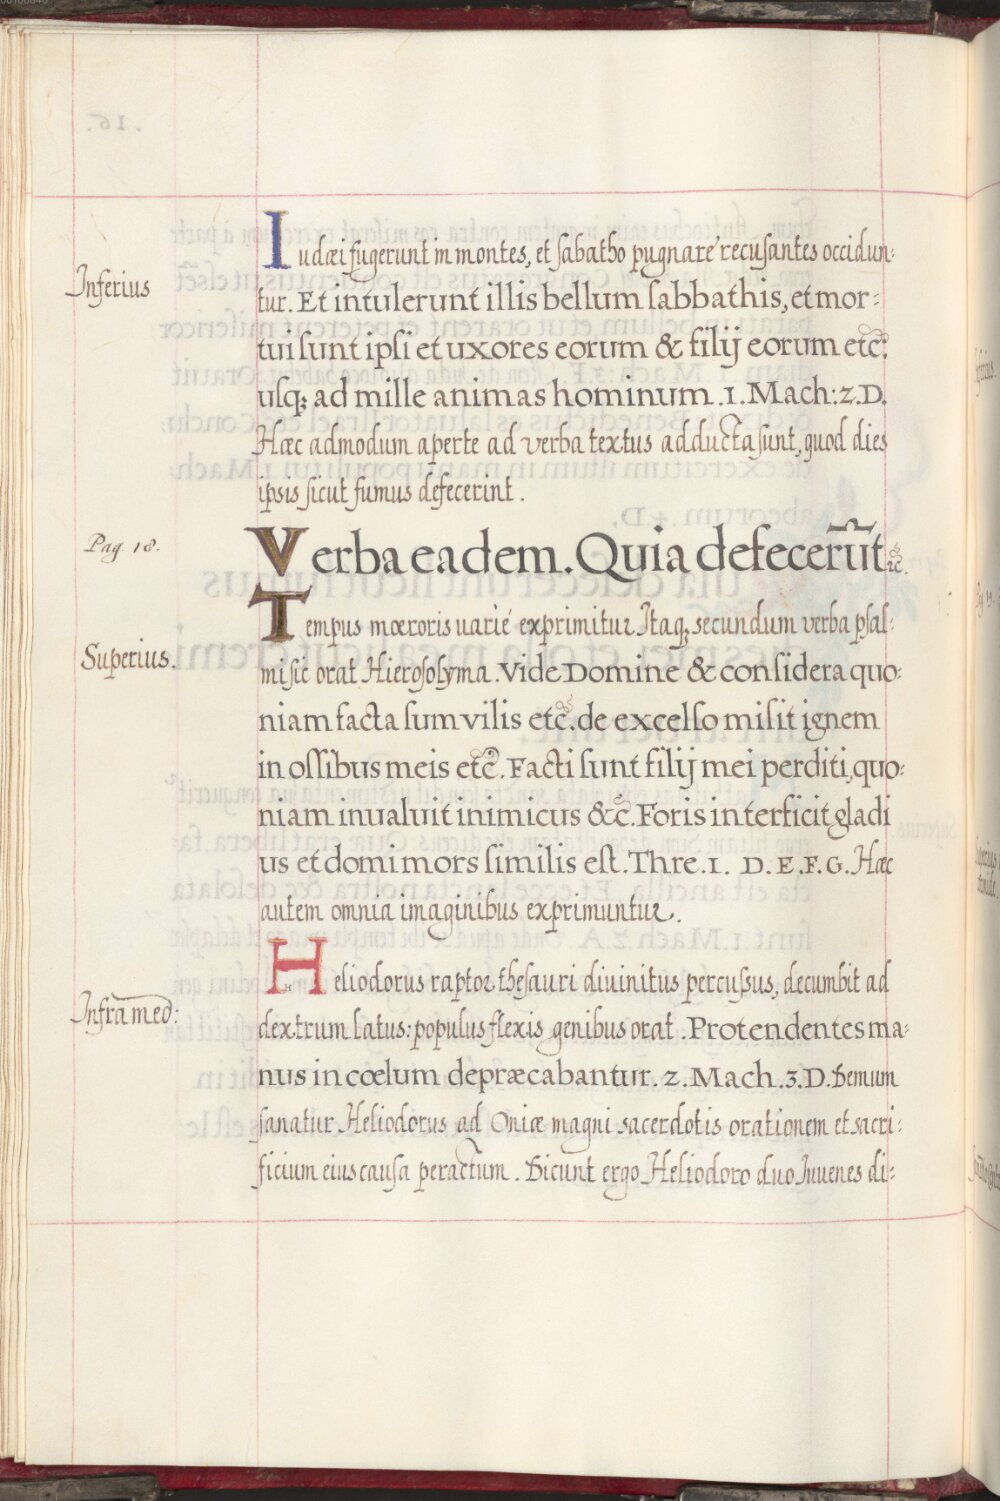 Inferius
Iudæi fugerunt in montes, et sabatho pugnare recusantes occidun-
tur. Et intulerunt illis bellum sabbathis, et mor-
tui sunt ipsi et uxores eorum & filij eorum etc:
usq; ad mille animas hominum .1. Mach: 2. D.
Hæc admodum aperte ad verba textus adducta sunt, quod dies
ipsis sicut fumus defecerint.
Pag. 18.
Verba eadem. Quia defecerũt &c.
Superius.
Tempus mœroris uarié exprimitur Itaq; secundum verba psal-
mi sic orat Hierosolyma. Vide Domine & considera quo-
niam facta sum vilis etc. de excelso misit ignem
in ossibus meis etc. Facti sunt filij mei perditi, quo-
niam inualuit inimicus &c. Foris interficit gladi
us et domi mors similis est. Thre. 1. D. E. F. G. Hæc
autem omnia imaginibus exprimuntur.
Infra med:
Heliodorus raptor thesauri diuinitus percussus, decumbit ad
dextrum latus: populus flexis genibus orat. Protendentes ma-
nus in cœlum depræcabantur. 2. Mach. 3. D. Demum
sanatur Heliodorus ad Oniæ magni sacerdotis orationem et sacri-
ficium eius causa peractum. Dicunt ergo Heliodoro duo Iuuenes di-